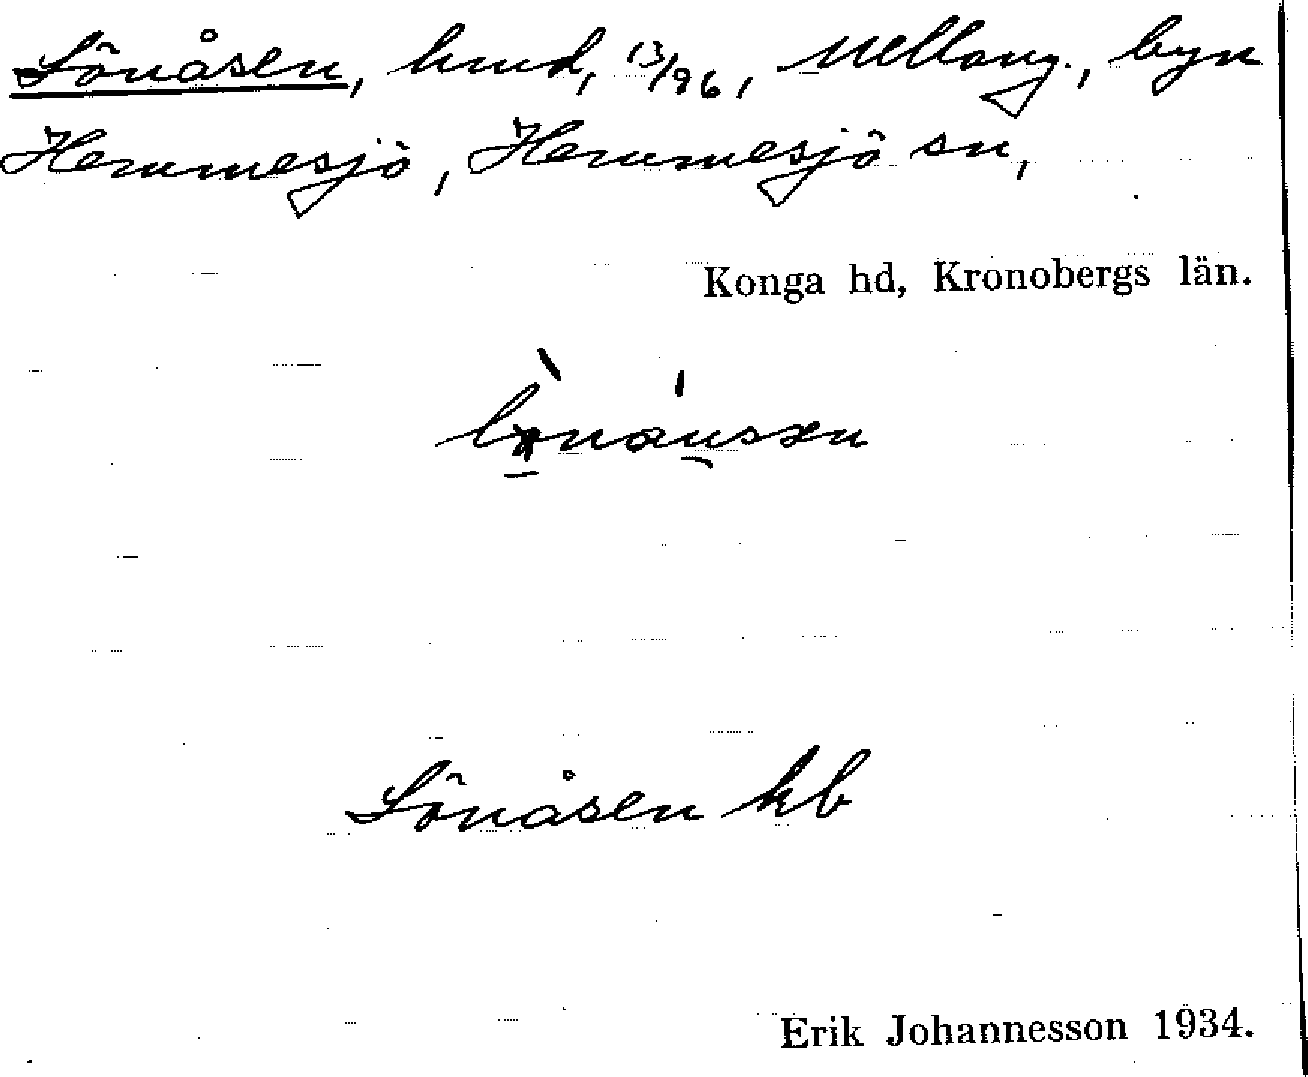 Lönåsen, hmd, 13/96, Mellang., byn
Hemmesjö, Hemmesjö sn,
Konga hd, Kronobergs län.
Lönåsen hb
Erik Johannesson 1934.